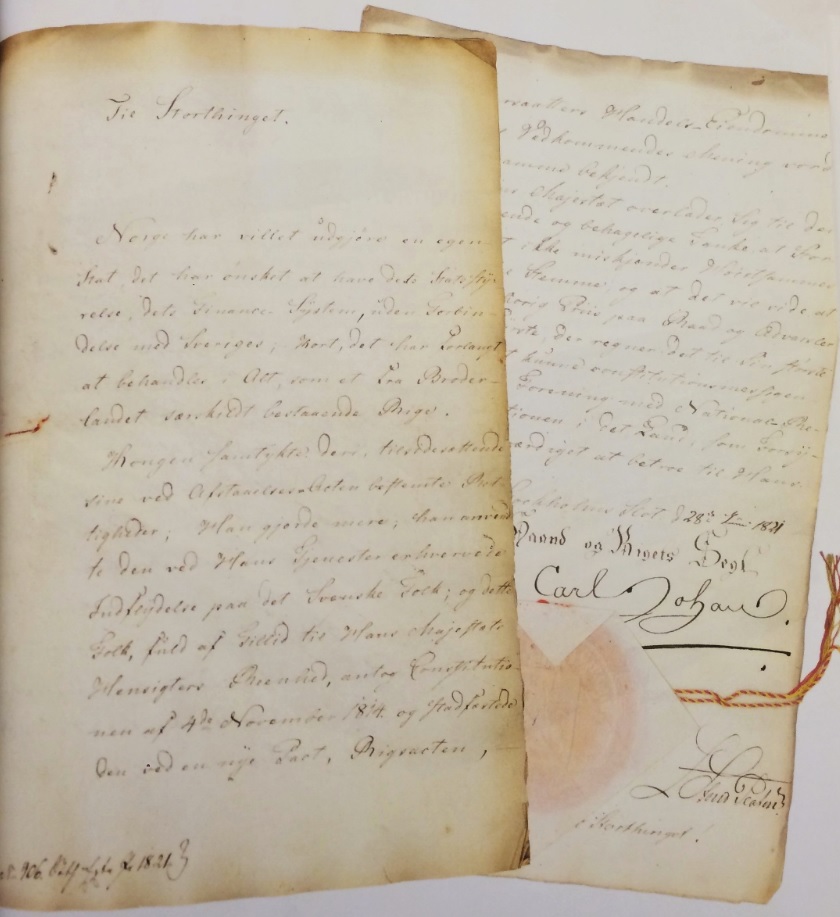 Til Storthinget.
Norge har villet udgjøre en egen
Stat, det har ønsket at have dets Statssty-
relse, dets Finance-System, uden Forbin-
delse med Sveriges; kort, det har forlangt
at behandles i Alt, som et fra Broder-
landet særskildt bestaaende Rige.
Kongen samtykte deri, tilsidesættende
sine ved Afstaaelses-Acten bestemte Ret-
tigheder; Han gjorde mere; han anvend
te den ved Hans Tjenester erhvervede
Indflydelse paa det Svenske Folk; og dette
Folk, fuld af Tillid til Hans Majestæts
Hensigters Reenhed, antog Constitutio-
nen af 4de November 1814. og stadfæstede
den ved en nye Pact, Rigsacten,
1821.
Handels-Eiendomme
Vedkommendes Mening vord
bekjendt.
Majestæt overlader Sig til den
og behagelige Tanke at Stor
ikke miskjender
Stemme, og at det vil vide at
Priis paa Raad og Advarsler
der regner det til Sin største
kunne constitutionsmessigen
Forening med National-Re-
i det Land, som Forsy-
at betroe til Hans
Slot d 28de 1821
Haand og Rigets Segl
Carl Johan.
Storthinget!